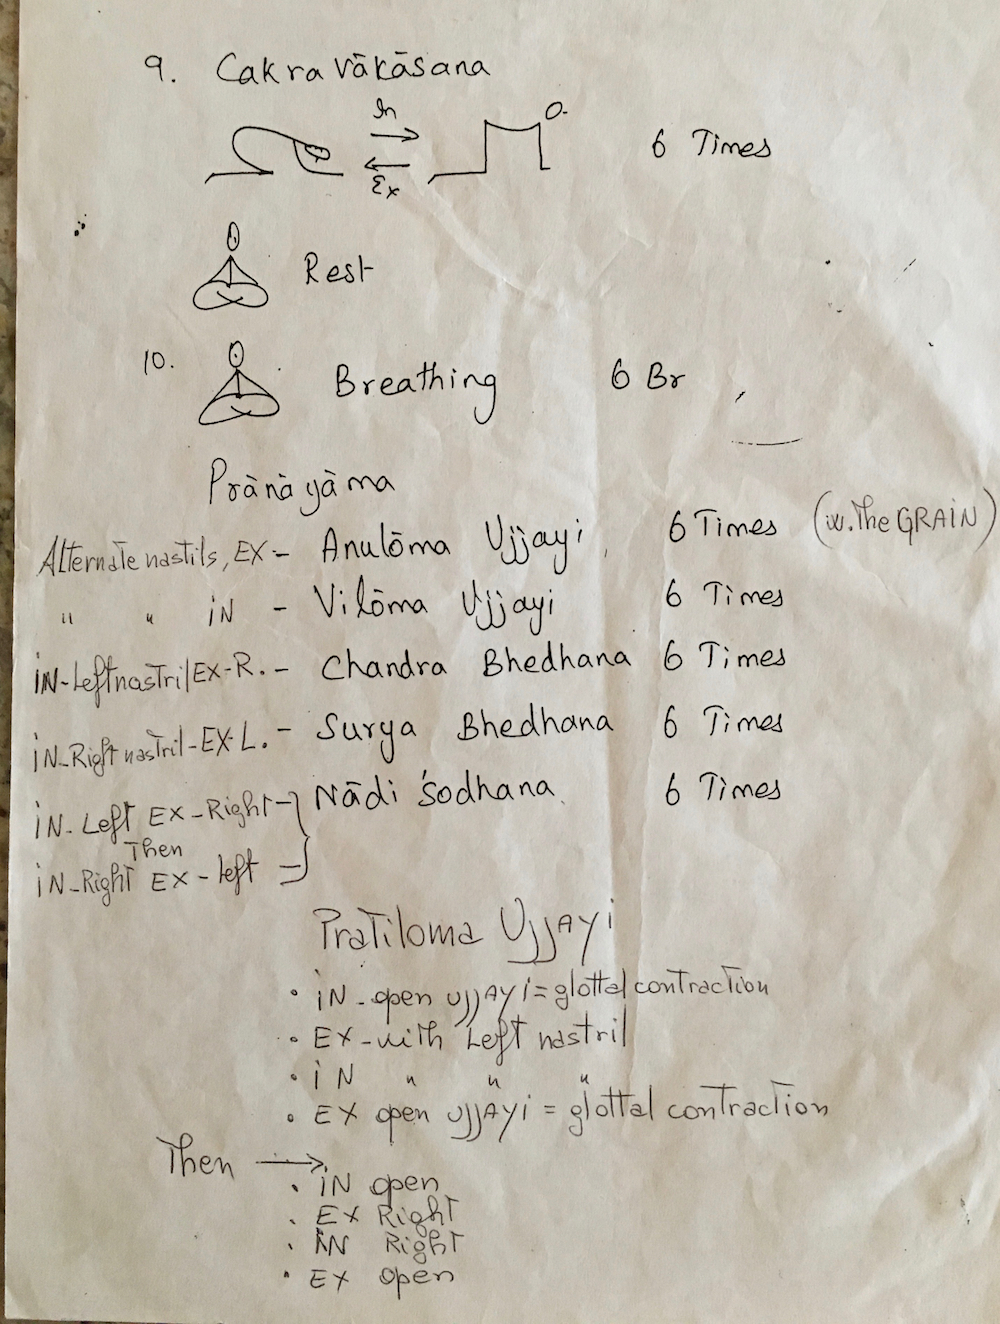 9. Cakravākāsana
In
Ex
6 Times
Rest
10. Breathing 6 Br
Prànàyàma
Alternate nastils, EX - Anulōma Ujjayi, 6 Times (w. The GRAIN)
" " iN - Vilōma Ujjayi 6 Times
iN-Left nastril EX-R. - Chandra Bhedhana 6 Times
iN-Right nastril-EX-L. - Surya Bhedhana 6 Times
iN-Left EX-Right - Nādi Śodhana 6 Times
Then
iN-Right EX-left -
Pratiloma Ujjayi
• iN-open ujjayi = glottal contraction
• EX-with Left nastril
• iN " " "
• EX open ujjayi = glottal contraction
Then →
• iN open
• EX Right
• iN Right
• EX open